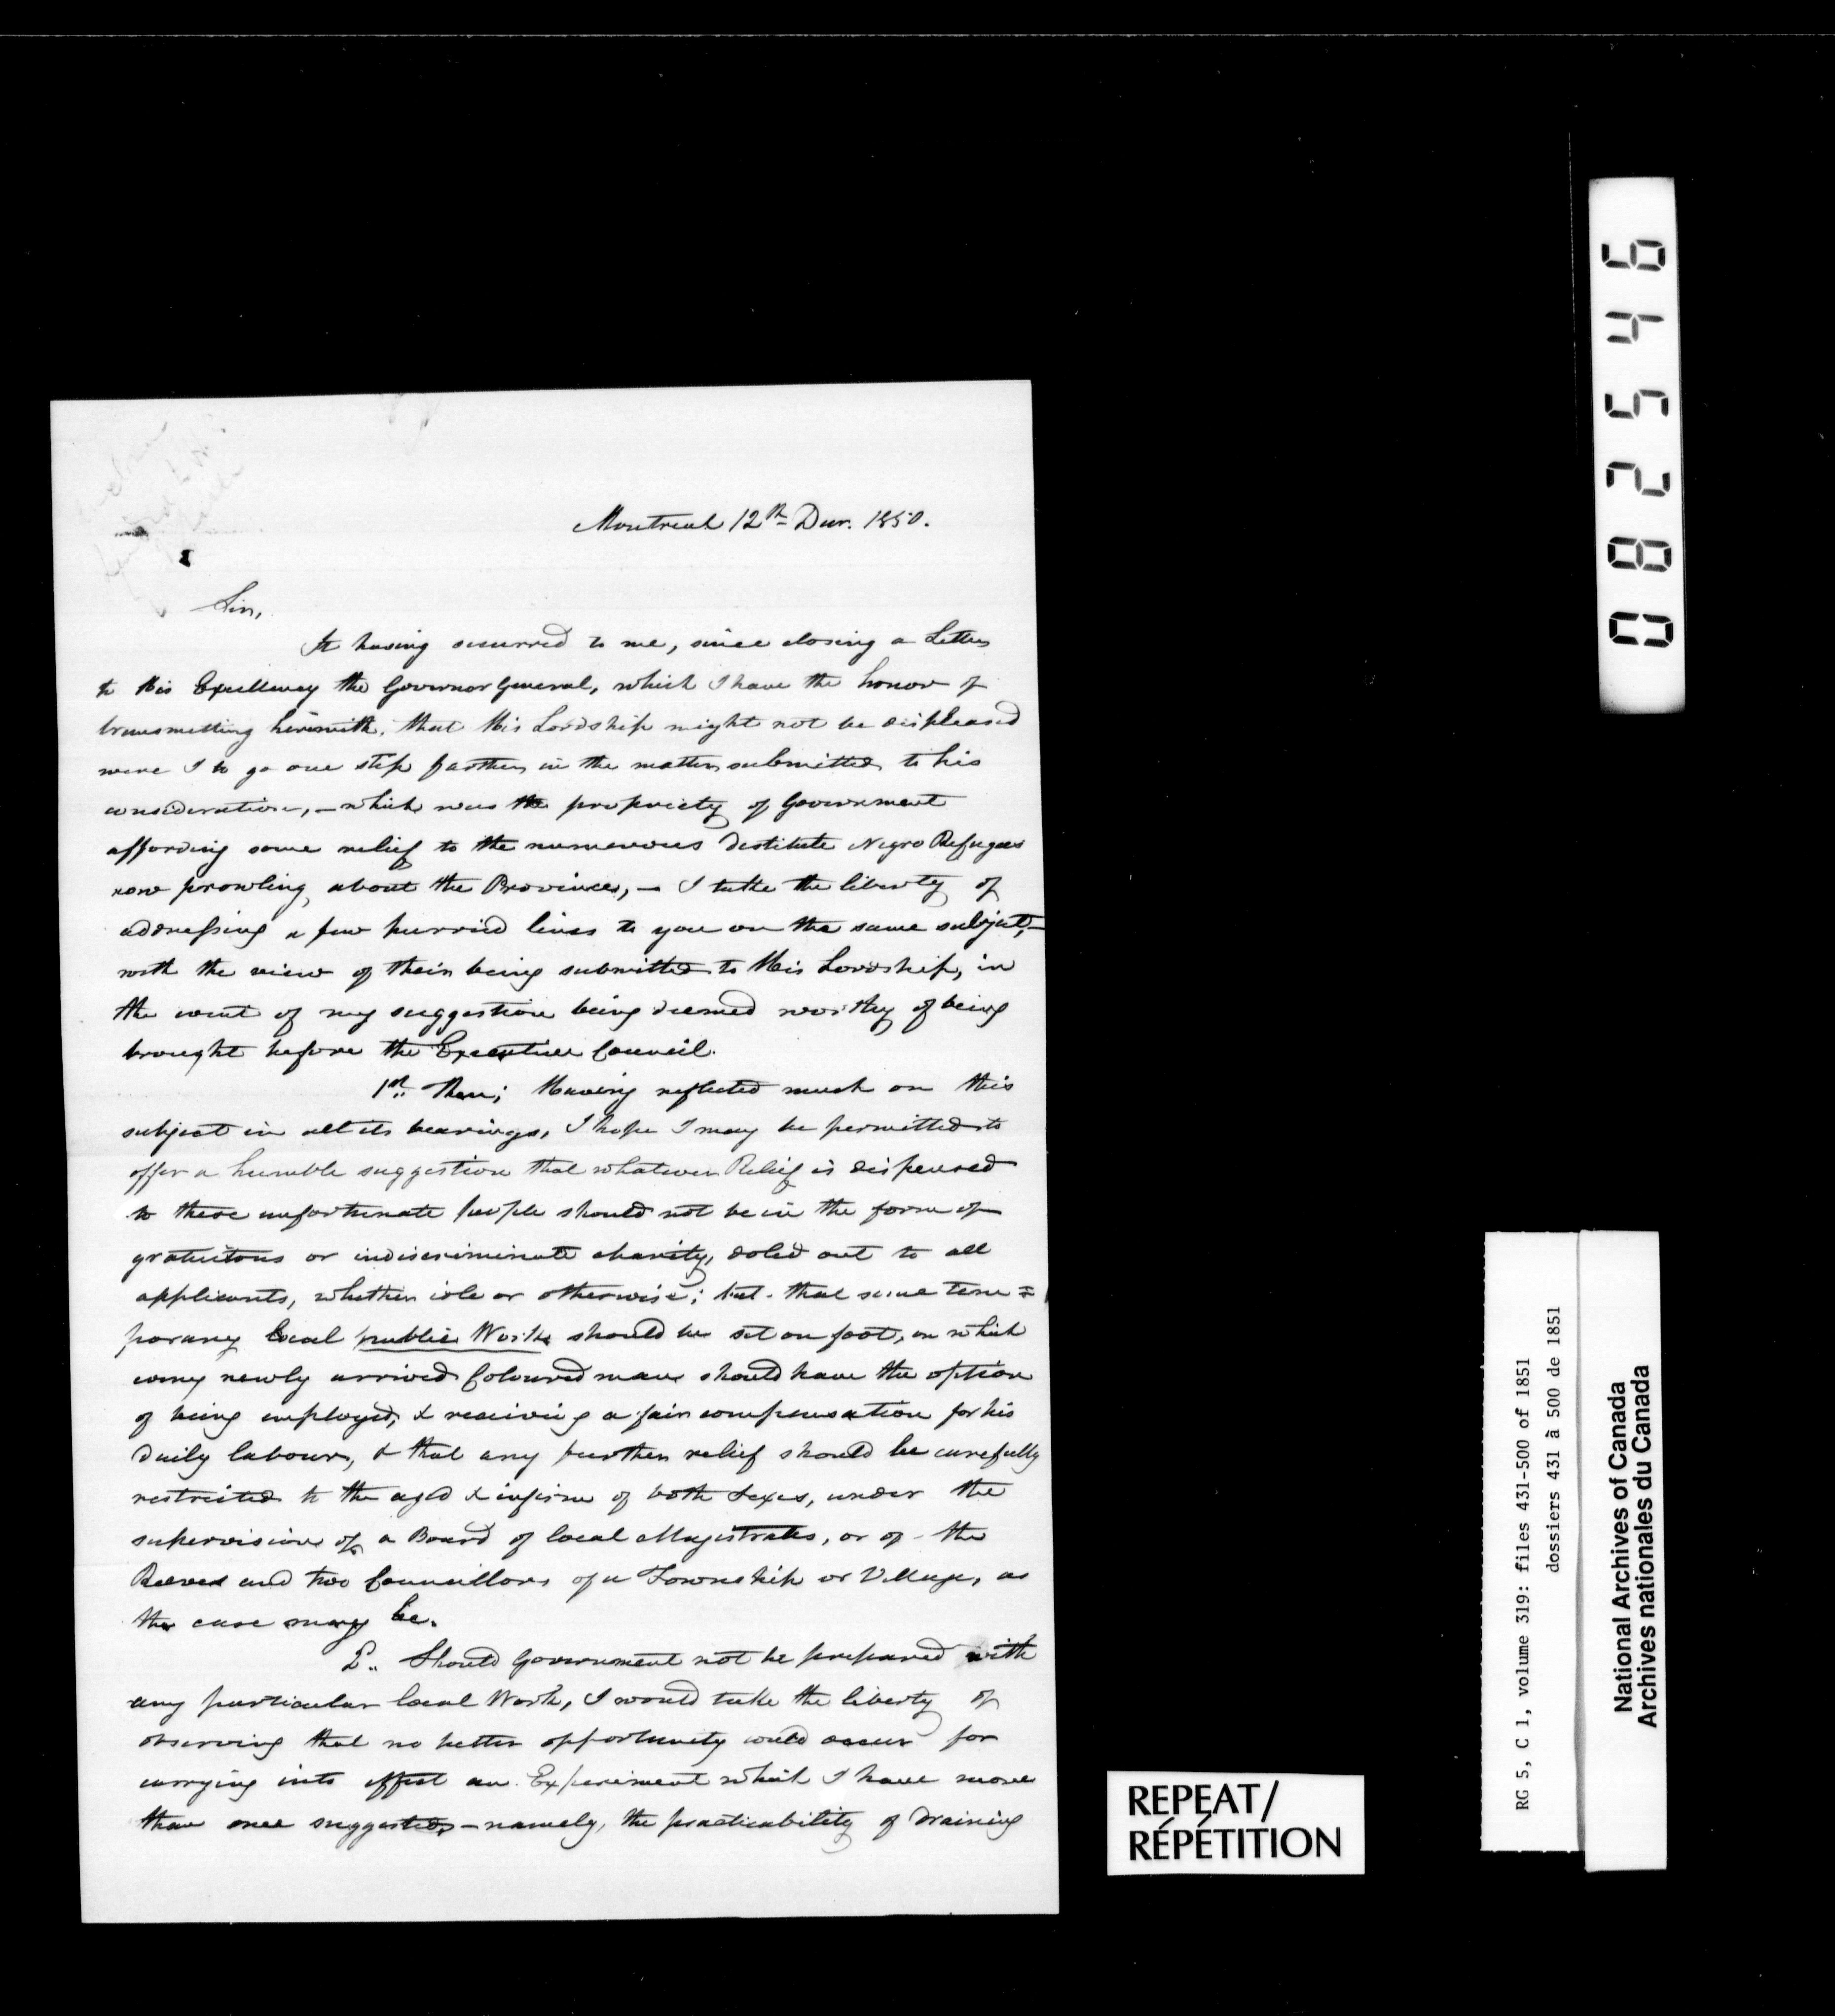 Montreal 12th Decr. 1850.
Sir,
It having occurred to me, since closing a Letter
to His Excellency the Governor General, which I have the honor of
transmitting herewith, that His Lordship might not be displeased
were I to go one step farther in the matter submitted to his
consideration, – which was the propriety of Government
affording some relief to the numerous destitute Negro Refugees
now prowling about the Province, – I take the liberty of
addressing a few hurried lines to you on the same subject, –
with the view of their being submitted to His Lordship, in
the event of my suggestion being deemed worthy of being
brought before the Executive Council.
1st. Then; Having reflected much on this
subject in all its bearings, I hope I may be permitted to
offer a humble suggestion that whatever Relief is dispensed
to these unfortunate people should not be in the form of
gratuitous or indiscriminate charity, doled out to all
applicants, whether idle or otherwise; but that some tem=
porary local public Works should be set on foot, on which
every newly arrived Coloured man should have the option
of being employed, & receiving a fair compensation for his
daily labour, & that any further relief should be carefully
restricted to the aged & infirm of both Sexes, under the
supervision of a Board of local Magistrates, or of the
Reeves and two Councillors of a Township or Village, as
the case may be.
2.. Should Government not be prepared with
any particular local Work, I would take the liberty of
observing that no better opportunity could occur for
carrying into effect an Experiment which I have more
than once suggested, – namely, the practicability of draining
082546
RG 5, C 1, volume 319: files 431-500 of 1851
dossiers 431 à 500 de 1851
National Archives of Canada
Archives nationales du Canada
REPEAT/
RÉPÉTITION